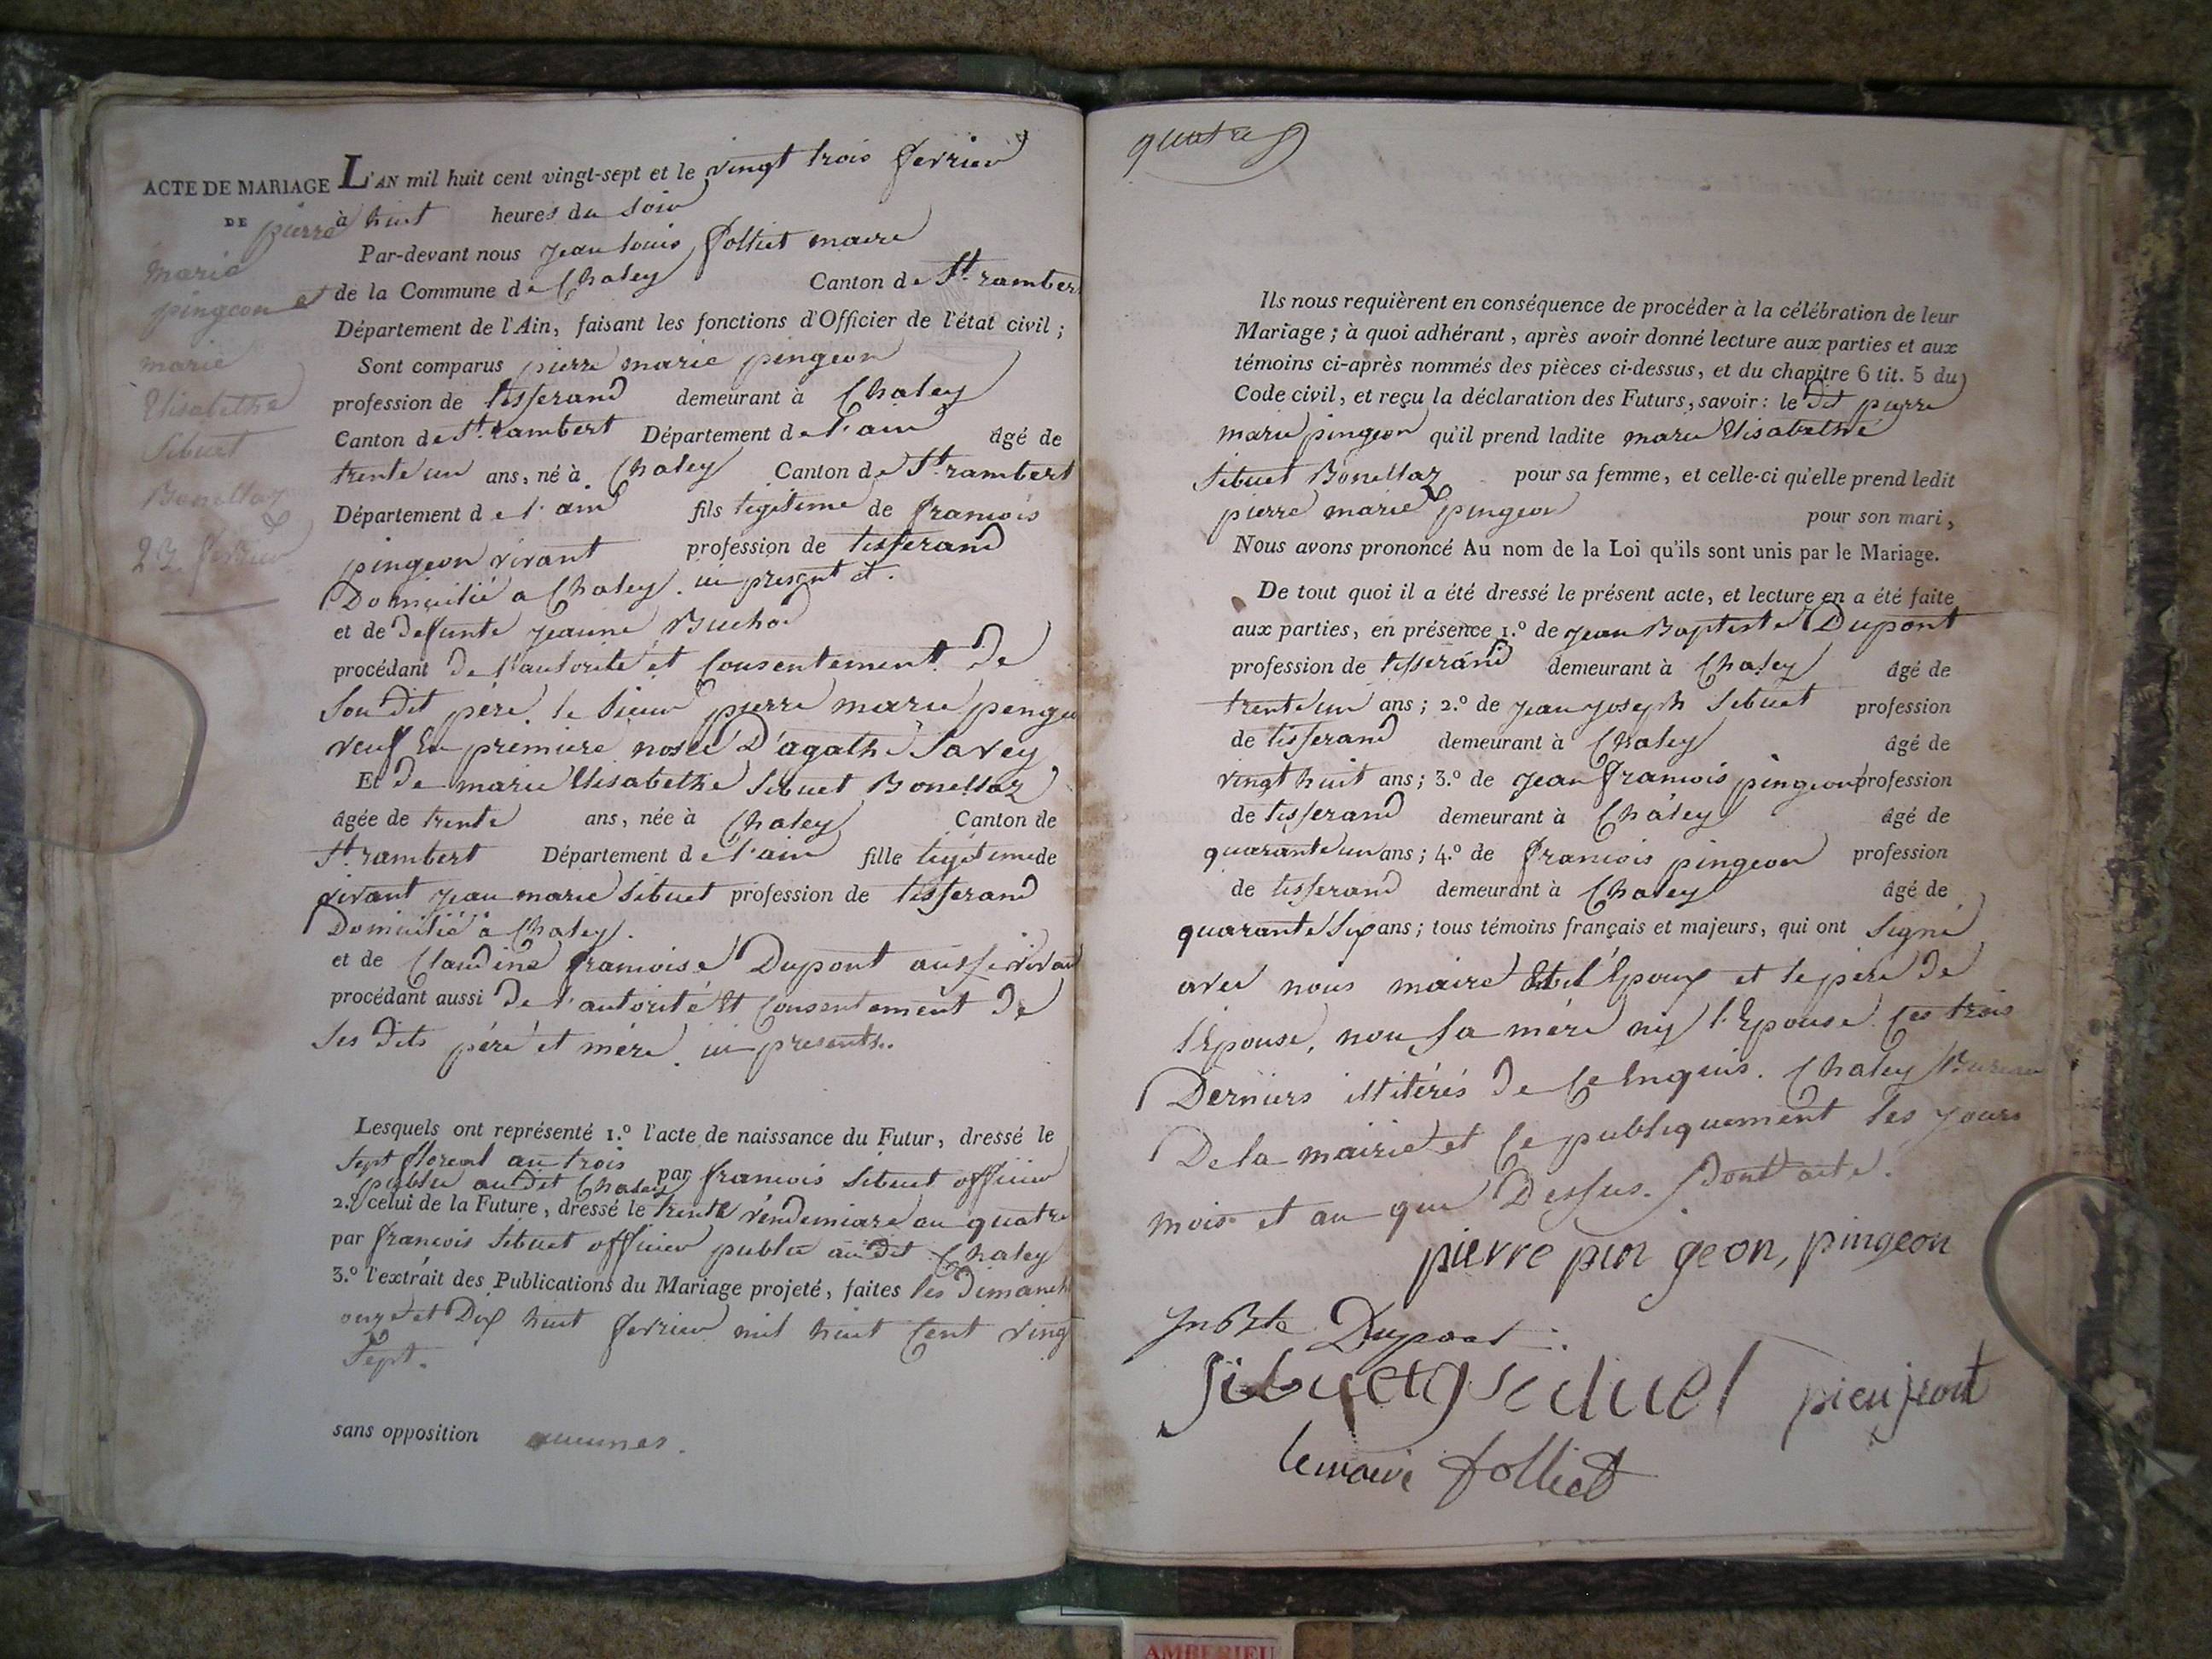 ACTE DE MARIAGE
DE pierre
marie
pingeon et
marie
Elisabethe
Sibuet
Bonellaz
23 fevrier
L'AN mil huit cent vingt-sept et le vingt trois fevrier
à huit heures du soir
Par-devant nous Jean louis folliet maire
de la Commune de Chaley Canton de St. rambert
Département de l'Ain, faisant les fonctions d'Officier de l'état civil ;
Sont comparus pierre marie pingeon
profession de tisserand demeurant à Chaley
Canton de St. rambert Département de l'ain âgé de
trente un ans, né à Chaley Canton de St. rambert
Département de l'ain fils legitime de francois
pingeon vivant profession de tisserand
Domicilié a Chaley. ici present et.
et de defunte jeanne Buchod
procédant de l'autorité et Consentement de
Son dit pere. le sieur pierre marie pingeon
veuf En premiere nosce D'agathe Savey
Et de marie Elisabethe Sibuet Bonellaz
âgée de trente ans, née à Chaley Canton de
St. rambert Département de l'ain fille legitime de
vivant jean marie Sibuet profession de tisserand
Domicilié a Chaley.
et de Claudine francoise Dupont aussi vivant
procédant aussi De l'autorité Et Consentement De
Ses Dits père et mère. ici presents.
Lesquels ont représenté 1.° l'acte de naissance du Futur, dressé le
Sept floreal an trois par francois Sibuet officier
public au dit Chaley
2.° celui de la Future, dressé le trente vendemiare an quatre
par francois Sibuet officier public au dit Chaley
3.° l'extrait des Publications du Mariage projeté, faites les Dimanch
onze et Dix huit fevrier mil huit Cent ving
Sept.
sans opposition aucunes.
quatre
Ils nous requièrent en conséquence de procéder à la célébration de leur
Mariage ; à quoi adhérant, après avoir donné lecture aux parties et aux
témoins ci-après nommés des pièces ci-dessus, et du chapitre 6 tit. 5 du
Code civil, et reçu la déclaration des Futurs, savoir : le dit pierre
marie pingeon qu'il prend ladite marie Elisabethe
Sibuet Bonellaz pour sa femme, et celle-ci qu'elle prend ledit
pierre marie pingeon pour son mari,
Nous avons prononcé Au nom de la Loi qu'ils sont unis par le Mariage.
De tout quoi il a été dressé le présent acte, et lecture en a été faite
aux parties, en présence 1.° de jean Baptiste Dupont
profession de tisserand demeurant à Chaley âgé de
trente un ans ; 2.° de jean joseph Sibuet profession
de tisserand demeurant à Chaley âgé de
vingt huit ans ; 3.° de jean francois pingeon profession
de tisserand demeurant à Chaley âgé de
quarante un ans ; 4.° de francois pingeon profession
de tisserand demeurant à Chaley âgé de
quarante six ans ; tous témoins français et majeurs, qui ont Signé
avec nous maire l'Epoux et le pere De
l'Epouse, non Sa mère ny l'Epouse. Ces trois
Derniers illitérés De Ce Enquis. Chaley Bureau
De la mairie et Ce publiquement les jours
mois et an que Dessus. Dont acte.
pierre pin geon, pingeon
Jn Bte Dupont
le maire folliet
AMBERIEU